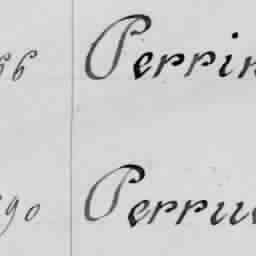 66 Perrin
90 Perru